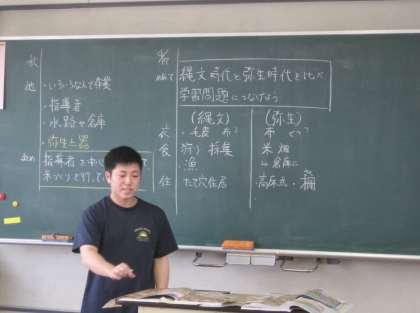 縄文時代と弥生時代を比べ
学習問題につなげよう
(縄文) (弥生)
衣 ・毛皮 布? 布
食 狩り 採集 米 畑
漁 倉庫に
住 たて穴住居 高床式・柵
・いろいろなんで作業
・指導者
・水路や倉庫
・弥生土器
指導者を中心
米づくりを行って